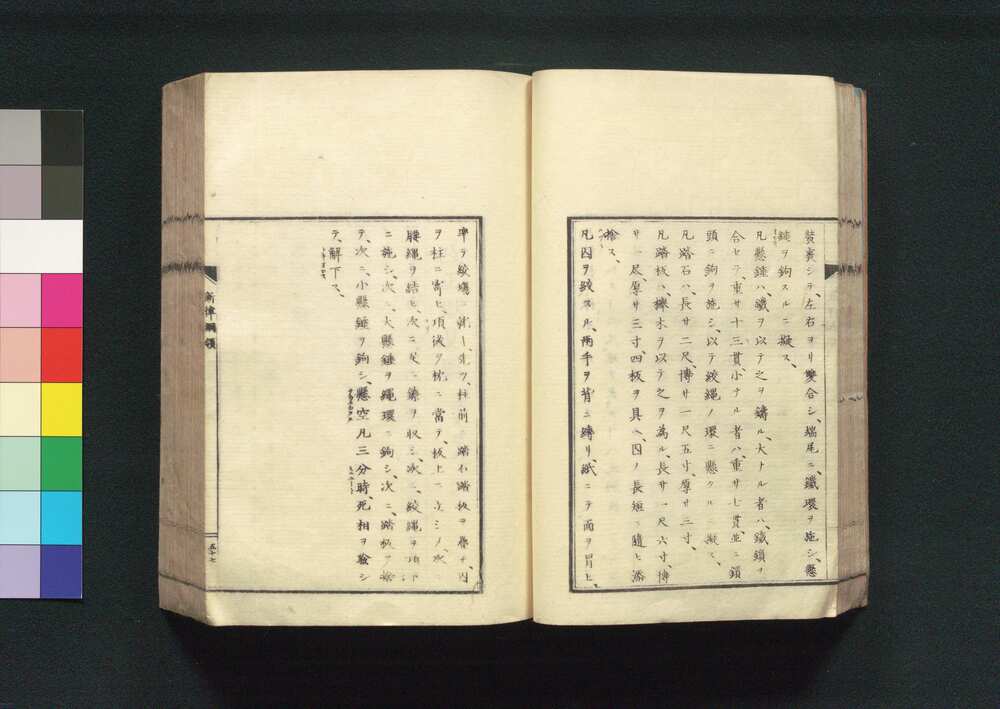 貫裹シテ、左右ヨリ雙合シ、端尾ニ、鐵環ヲ施シ、懸
錘ヲ鉤スルニ擬ス、
凡懸錘ハ、鐵ヲ以テ之ヲ鑄ル、大ナル者ハ、鐵鎖ヲ
合セテ重サ十三貫、小ナル者ハ、重サ七貫、並ニ鎖
頭ニ鉤ヲ施シ、以テ絞繩ノ環ニ懸クルニ擬ス、
凡踏石ハ、長サ二尺、博サ一尺五寸、厚サ三寸、
凡踏板ハ、櫸木ヲ以テ之ヲ為ル、長サ一尺六寸、博
サ一尺、厚サ三寸、四板ヲ具ヘ、囚ノ長短ニ隨ヒ添
捨ス、
凡囚ヲ絞スル、兩手ヲ背ニ縛リ、紙ニテ面ヲ冒ヒ、
率テ絞場ニ就ク、先ツ、柱前ニ踏石踏板ヲ疊ナ、囚
ヲ柱ニ寄セ、項後ヲ枕ニ當テ、板上ニ立シメ、次ニ
腰繩ヲ結ヒ、次ニ足ニ鑄ヲ収シ、次ニ絞繩ヲ項下
ニ施シ、次ニ、大懸錘ヲ繩環ニ鉤シ、次ニ、踏板ヲ
テ、次ニ、小懸錘ヲ鉤シ、懸空凡三分時、死相ヲ驗シ
テ、解下ス、
新律綱領
五十七